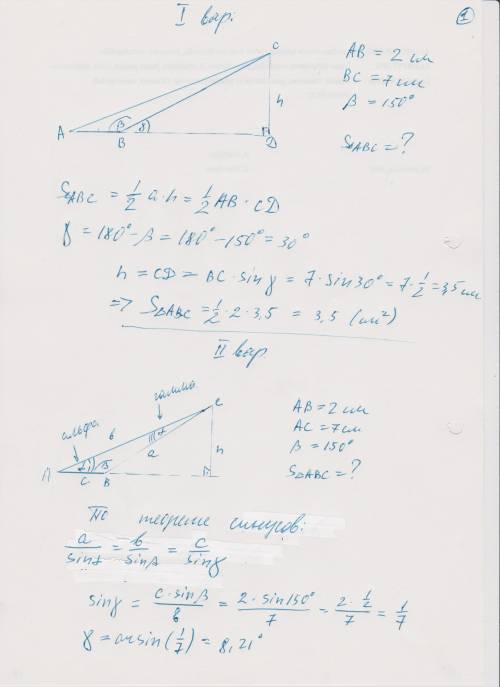 I вар.
1
C
AB = 2 см
BC = 7 см
β = 150°
S△ABC = ?
A
β
γ
h
B
D
S△ABC = 1/2 a·h = 1/2 AB · CD
γ = 180° - β = 180° - 150° = 30°
h = CD = BC · sin γ = 7 · sin 30° = 7 · 1/2 = 3,5 см
=> S△ABC = 1/2 · 2 · 3,5 = 3,5 (см²)
II вар.
гамма
альфа
C
AB = 2 см
AC = 7 см
β = 150°
S△ABC = ?
b
a
h
A
α
β
c
B
По теореме синусов:
a/sinα = b/sinβ = c/sinγ
sinγ = c·sinβ/b = 2·sin150°/7 = 2·1/2/7 = 1/7
γ = arcsin(1/7) = 8,21°